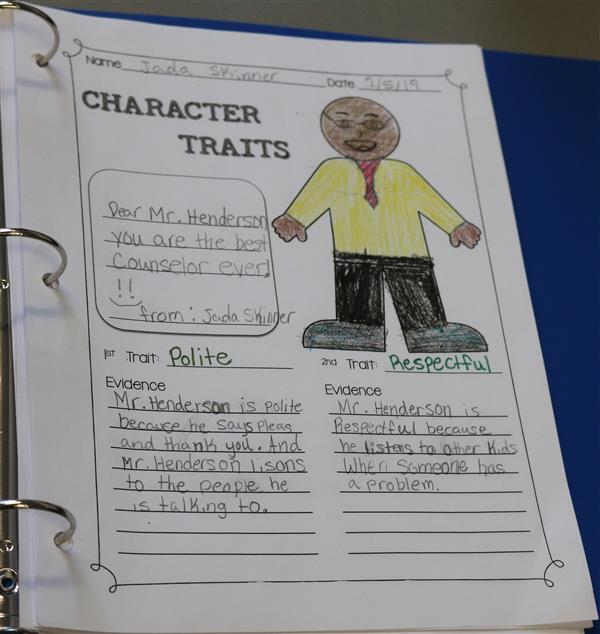 Name Jada Skinner Date 2/5/19
CHARACTER
TRAITS
Dear Mr. Henderson
you are the best
Counselor ever!
!!
from: Jada Skinner
1st Trait: Polite
Evidence
Mr. Henderson is polite
because he says pleas
and thank you. And
Mr. Henderson lisons
to the people he
is talking to.
2nd Trait: Respectful
Evidence
Mr. Henderson is
Respectful because
he listens to other kids
when someone has
a problem.